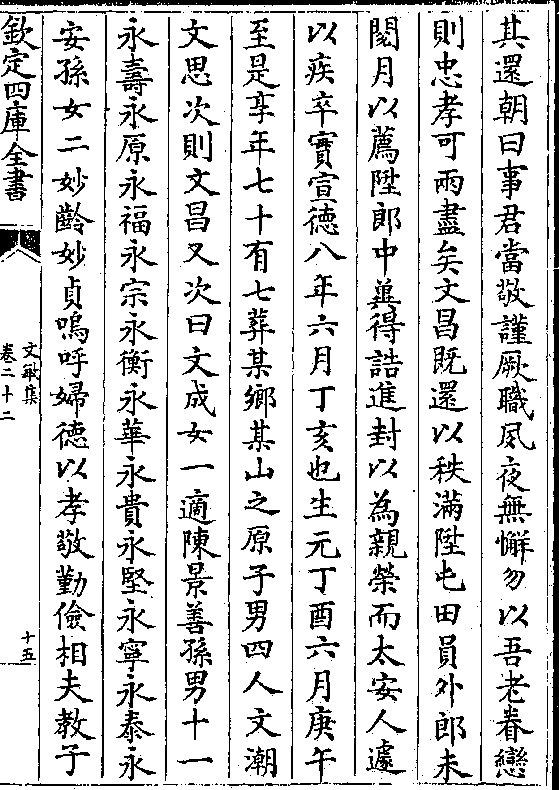 其還朝曰事君當敬謹厥職夙夜無懈勿以吾老眷戀
則忠孝可兩盡矣文昌既還以秩滿陞屯田員外郎未
閱月以薦陞郎中兾得誥進封以為親榮而太安人遽
以疾卒實宣徳八年六月丁亥也生元丁酉六月庚午
至是享年七十有七葬某鄉某山之原子男四人文潮
文思次則文昌又次曰文成女一適陳景善孫男十一
永壽永原永福永宗永衡永華永貴永堅永寧永泰永
安孫女二妙齡妙貞嗚呼婦徳以孝敬勤儉相夫教子
欽定四庫全書
文敏集
卷二十二
十五